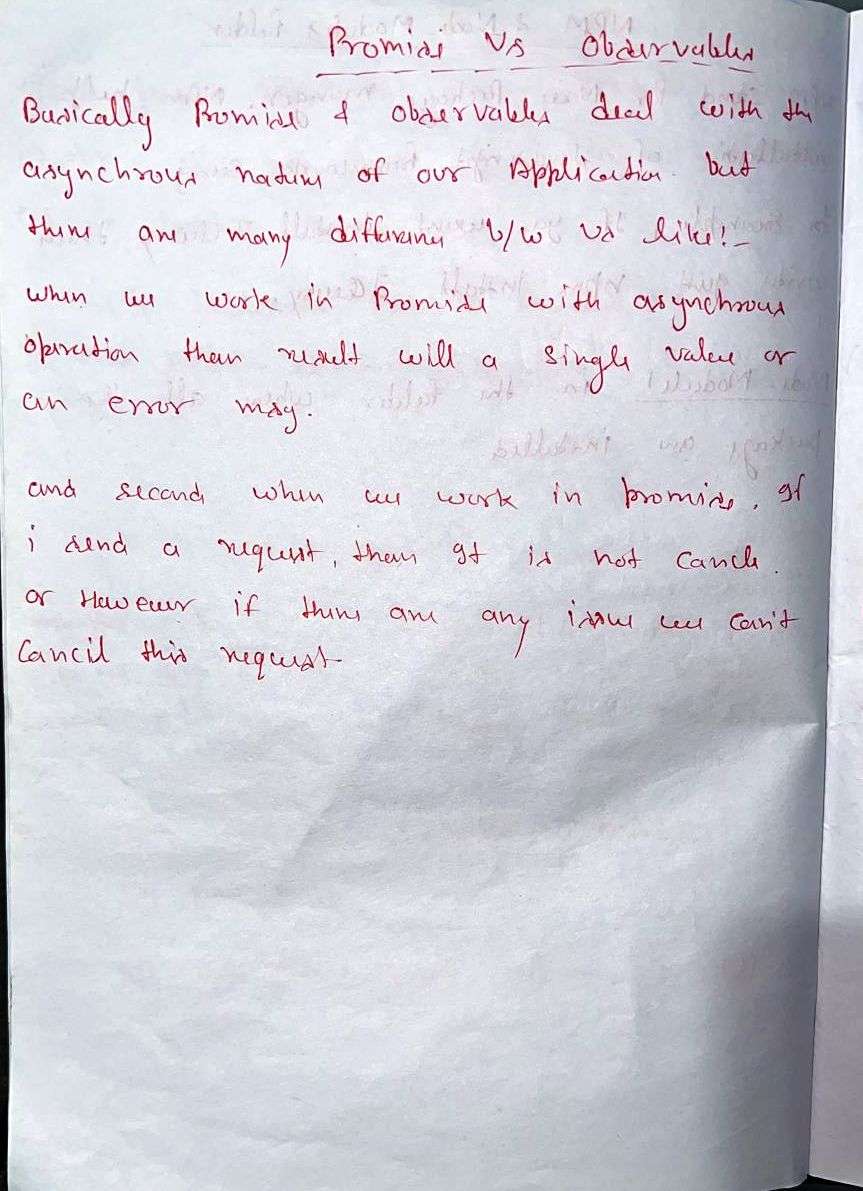 Promise Vs Observables
Basically Promise & observables deal with the
asynchrous nature of our Application but
there are many differeny b/w us like!-
when we work in Promise with asynchrous
operation then result will a single value or
an error msg.
and second when we work in promise, If
i send a request, then It is not cancle.
or However if there are any issue we can't
Cancil this request